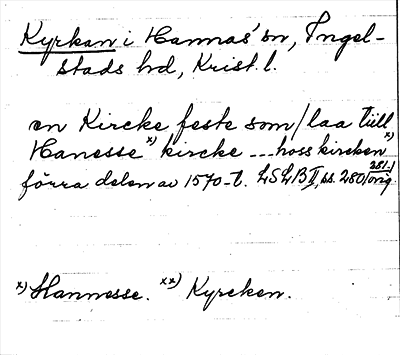 Kyrkan i Hannas' sn, Ingel-
stads hd, Krist. l.
en Kircke feste som / laa tiill
Hanesse x) kircke --- hoss kircken x)
förra delen av 1570-t. LSLB II, ss. 280/281-) orig.
x) Hannesse. xx) Kyrcken.